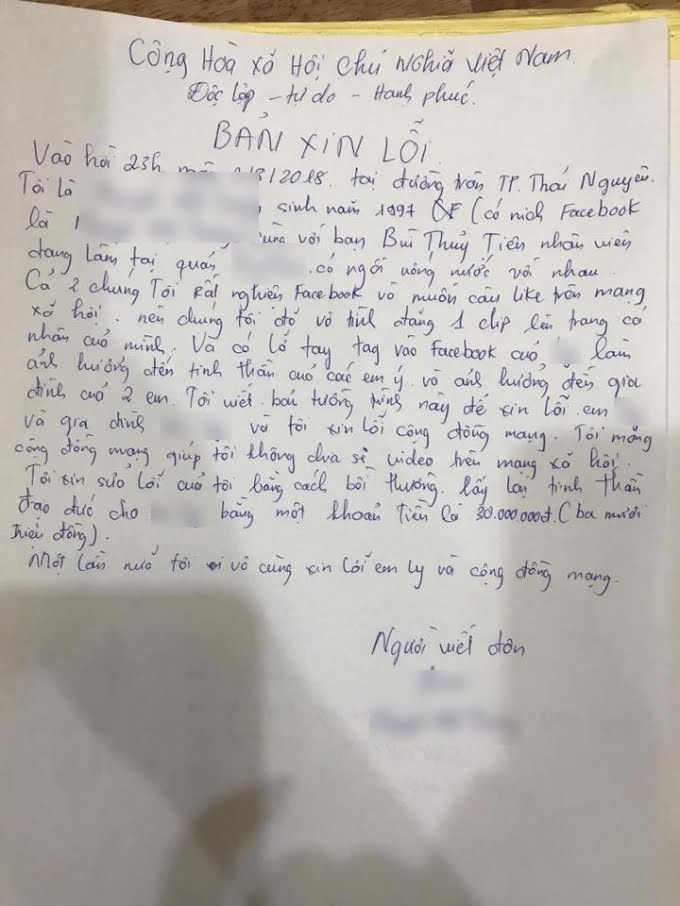 Cộng Hoà xã Hội chủ nghĩa việt Nam.
Độc lập - tự do - Hạnh phúc.
BẢN XIN LỖI.
Vào hồi 23h /3/2018. tại đường tròn TP. Thái Nguyên.
Tôi là sinh năm 1997 (có nick Facebook
là cùng với bạn Bùi Thuỷ Tiên nhân viên
đang làm tại quán có ngồi uống nước với nhau.
Cả 2 chúng Tôi rất nghiện Facebook và muốn câu like trên mạng
xã hội. nên chúng tôi đã vô tình đăng 1 clip lên trang cá
nhân của mình. Và có lỡ tay tag vào Facebook của làm
ảnh hưởng đến tinh thần của các em ý. và ảnh hưởng đến gia
đình của 2 em. Tôi viết bản tường trình này để xin lỗi em
và gia đình và tôi xin lỗi cộng đồng mạng. Tôi mong
cộng đồng mạng giúp tôi không chia sẻ video trên mạng xã hội.
Tôi xin sửa lỗi của tôi bằng cách bồi thường. lấy lại tinh thần
đạo đức cho bằng một khoản Tiền là 30.000.000đ. (ba mươi
triệu đồng).
Một lần nữa tôi vô cùng xin lỗi em ly và cộng đồng mạng.
Người viết đơn